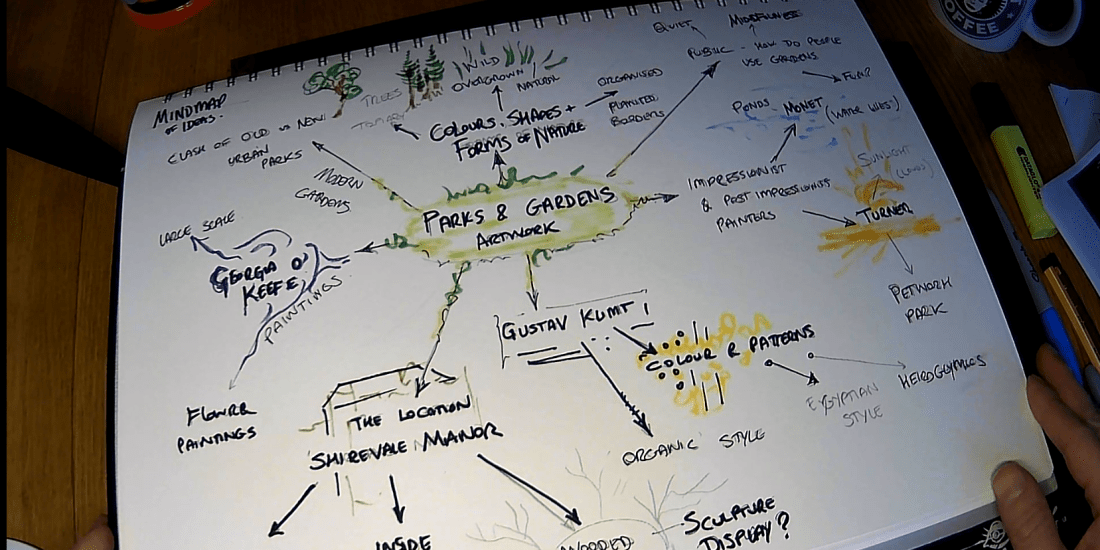 MINDMAP
OF IDEAS.
CLASH OF OLD vs NEW
URBAN
PARKS
MODERN
GARDENS
TREES
TOPIARY
WILD
OVERGROWN
NATURAL
COLOURS, SHAPES +
FORMS OF NATURE
ORGANISED
PLANTED
BORDERS
QUIET
MINDFULNESS
PUBLIC - HOW DO PEOPLE
USE GARDENS
FUN?
PONDS - MONET (WATER LILIES)
SUNLIGHT
(CLOUDS)
IMPRESSIONIST
& POST IMPRESSIONIST
PAINTERS
TURNER
PETWORTH
PARK
PARKS & GARDENS
ARTWORK
LARGE SCALE
GEORGIA O'
KEEFE
PAINTINGS
FLOWER
PAINTINGS
GUSTAV KLIMT
COLOUR & PATTERNS
EYGYPTIAN
STYLE
HEIROGLYPHICS
ORGANIC STYLE
THE LOCATION
SHIREVALE MANOR
INSIDE
WOODED
SCULPTURE
DISPLAY?
COFFEE